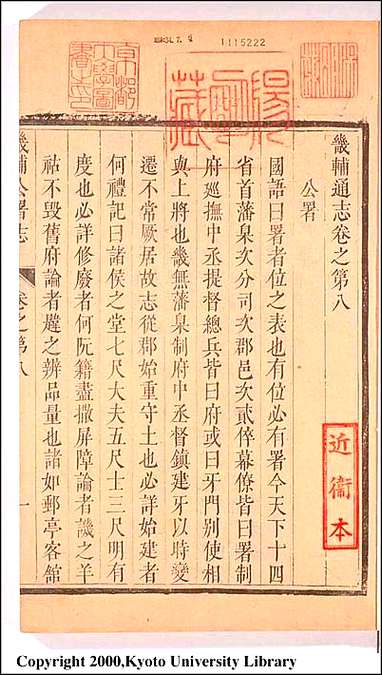 畿輔通志卷之第八
公署
國語曰署者位之表也有位必有署今天下十四
省首藩臬次分司次郡邑次貳倅幕僚皆曰署制
府廵撫中丞提督總兵皆曰府或曰牙門别使相
與上將也畿無藩臬制府中丞督鎮建牙以時變
遷不常厥居故志從郡始重守土也必詳始建者
何禮記曰諸侯之堂七尺大夫五尺士三尺明有
度也必詳修廢者何阮籍盡撤屏障論者譏之羊
祜不毀舊府論者韙之辨品量也諸如郵亭客舘
畿輔公署志
卷之第八
一
近衞本
京都帝國大學圖書之印
1115222
Copyright 2000,Kyoto University Library